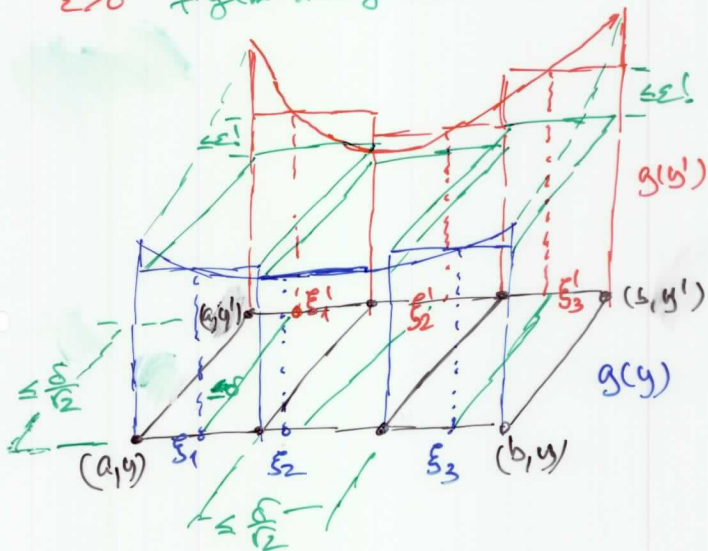 ε>0
≤ε!
≤ε!
g(y')
(a,y') ξ₁' ξ₂' ξ₃' (b,y')
≤δ/√2 ≤δ g(y)
(a,y) ξ₁ ξ₂ ξ₃ (b,y)
≤δ/√2